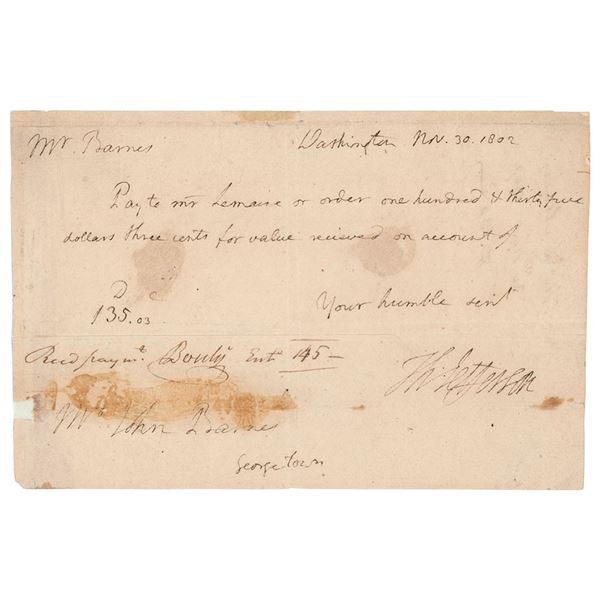 Mr. Barnes Washington Nov. 30. 1802
Pay to mr Lemaire or order one hundred & thirty five
dollars three cents for value recieved on account of
D c
135.03
Your humble servt
Recd paymt Bouly Entd 145
Th: Jefferson
Mr. John Barnes
Georgetown